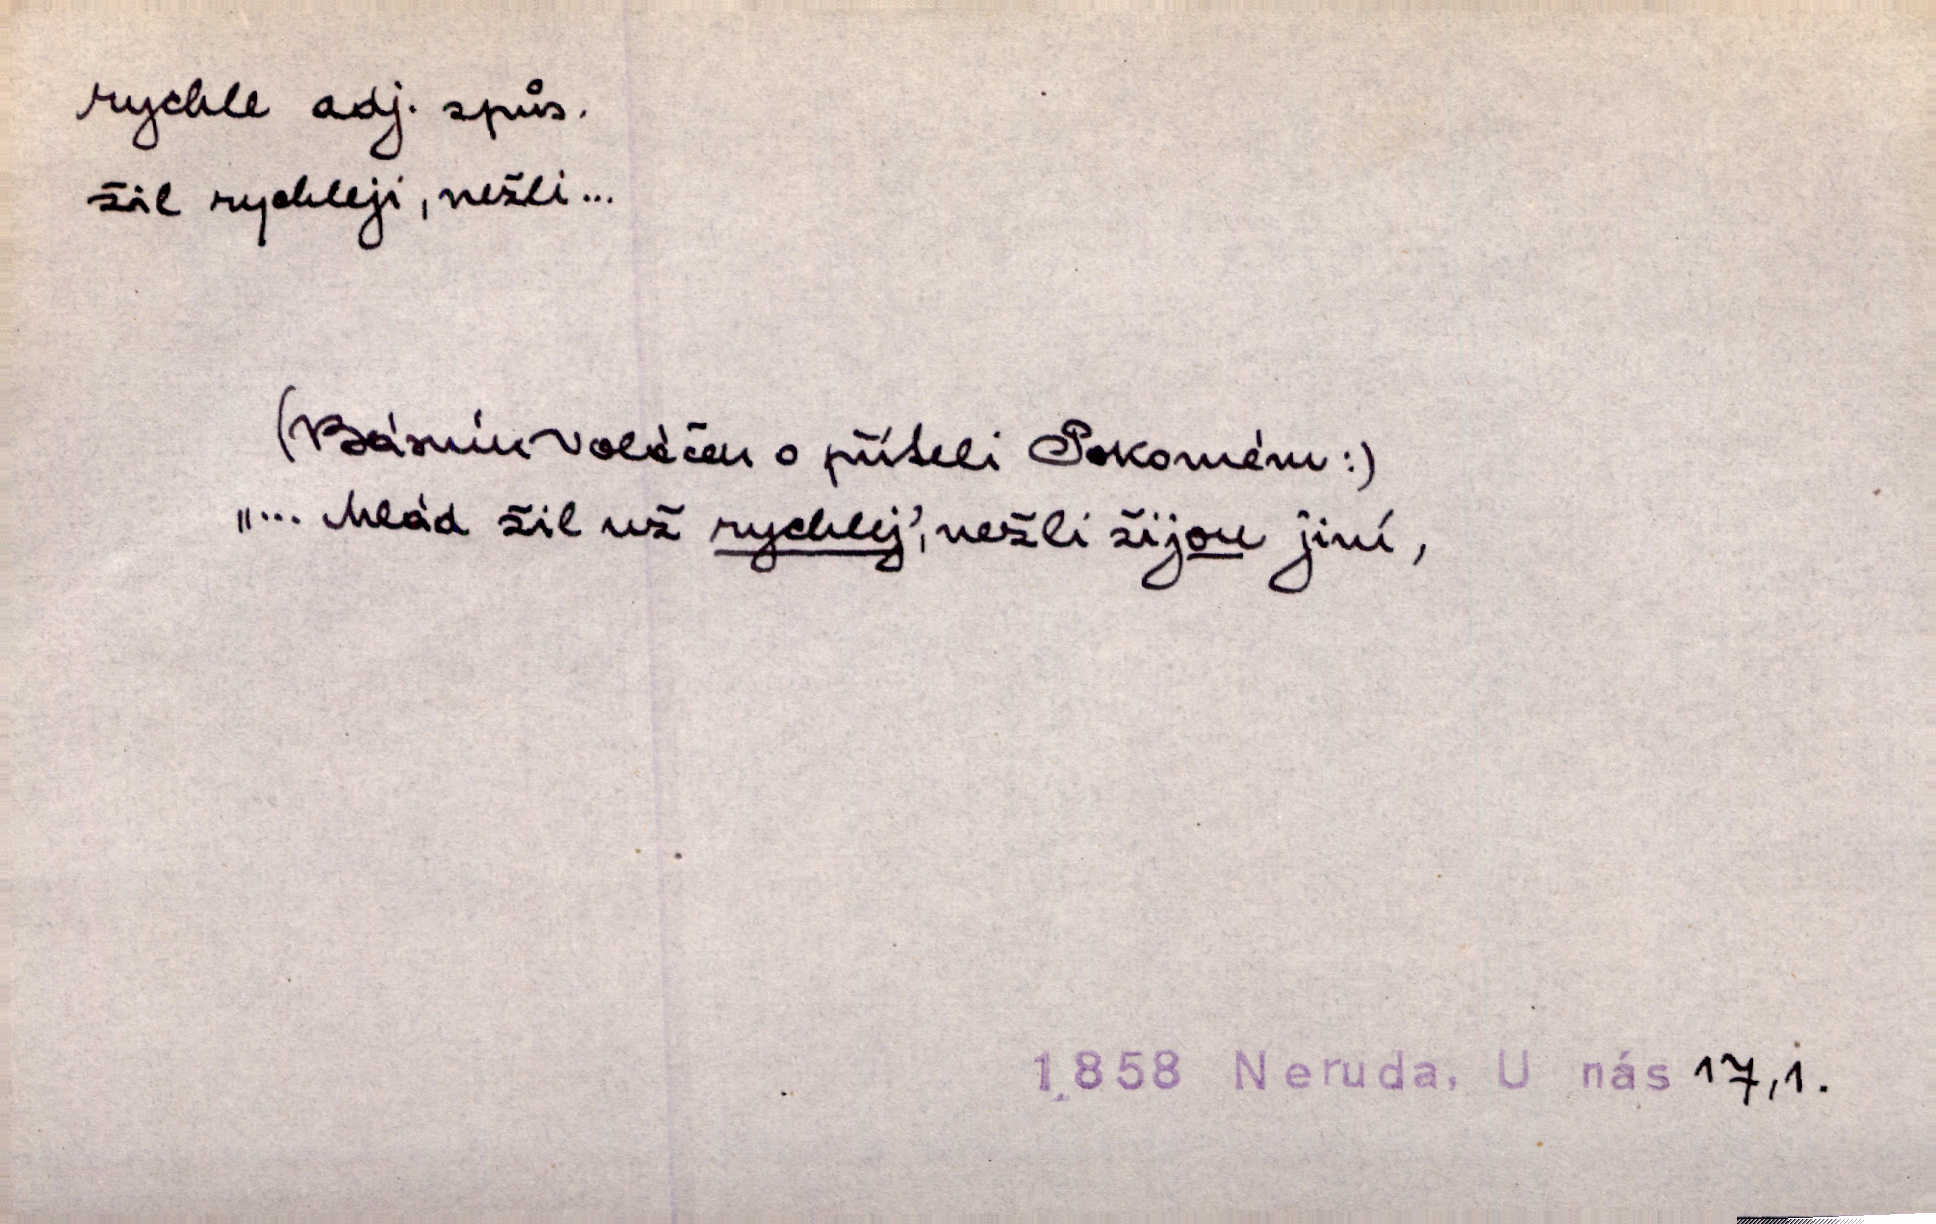 rychle adj. spůs.
žil rychleji, nežli...
(Básník Voláček o příteli Pokorném:)
„... Mlád žil už rychlej', nežli žijou jiní,
1858 Neruda, U nás 17,1.